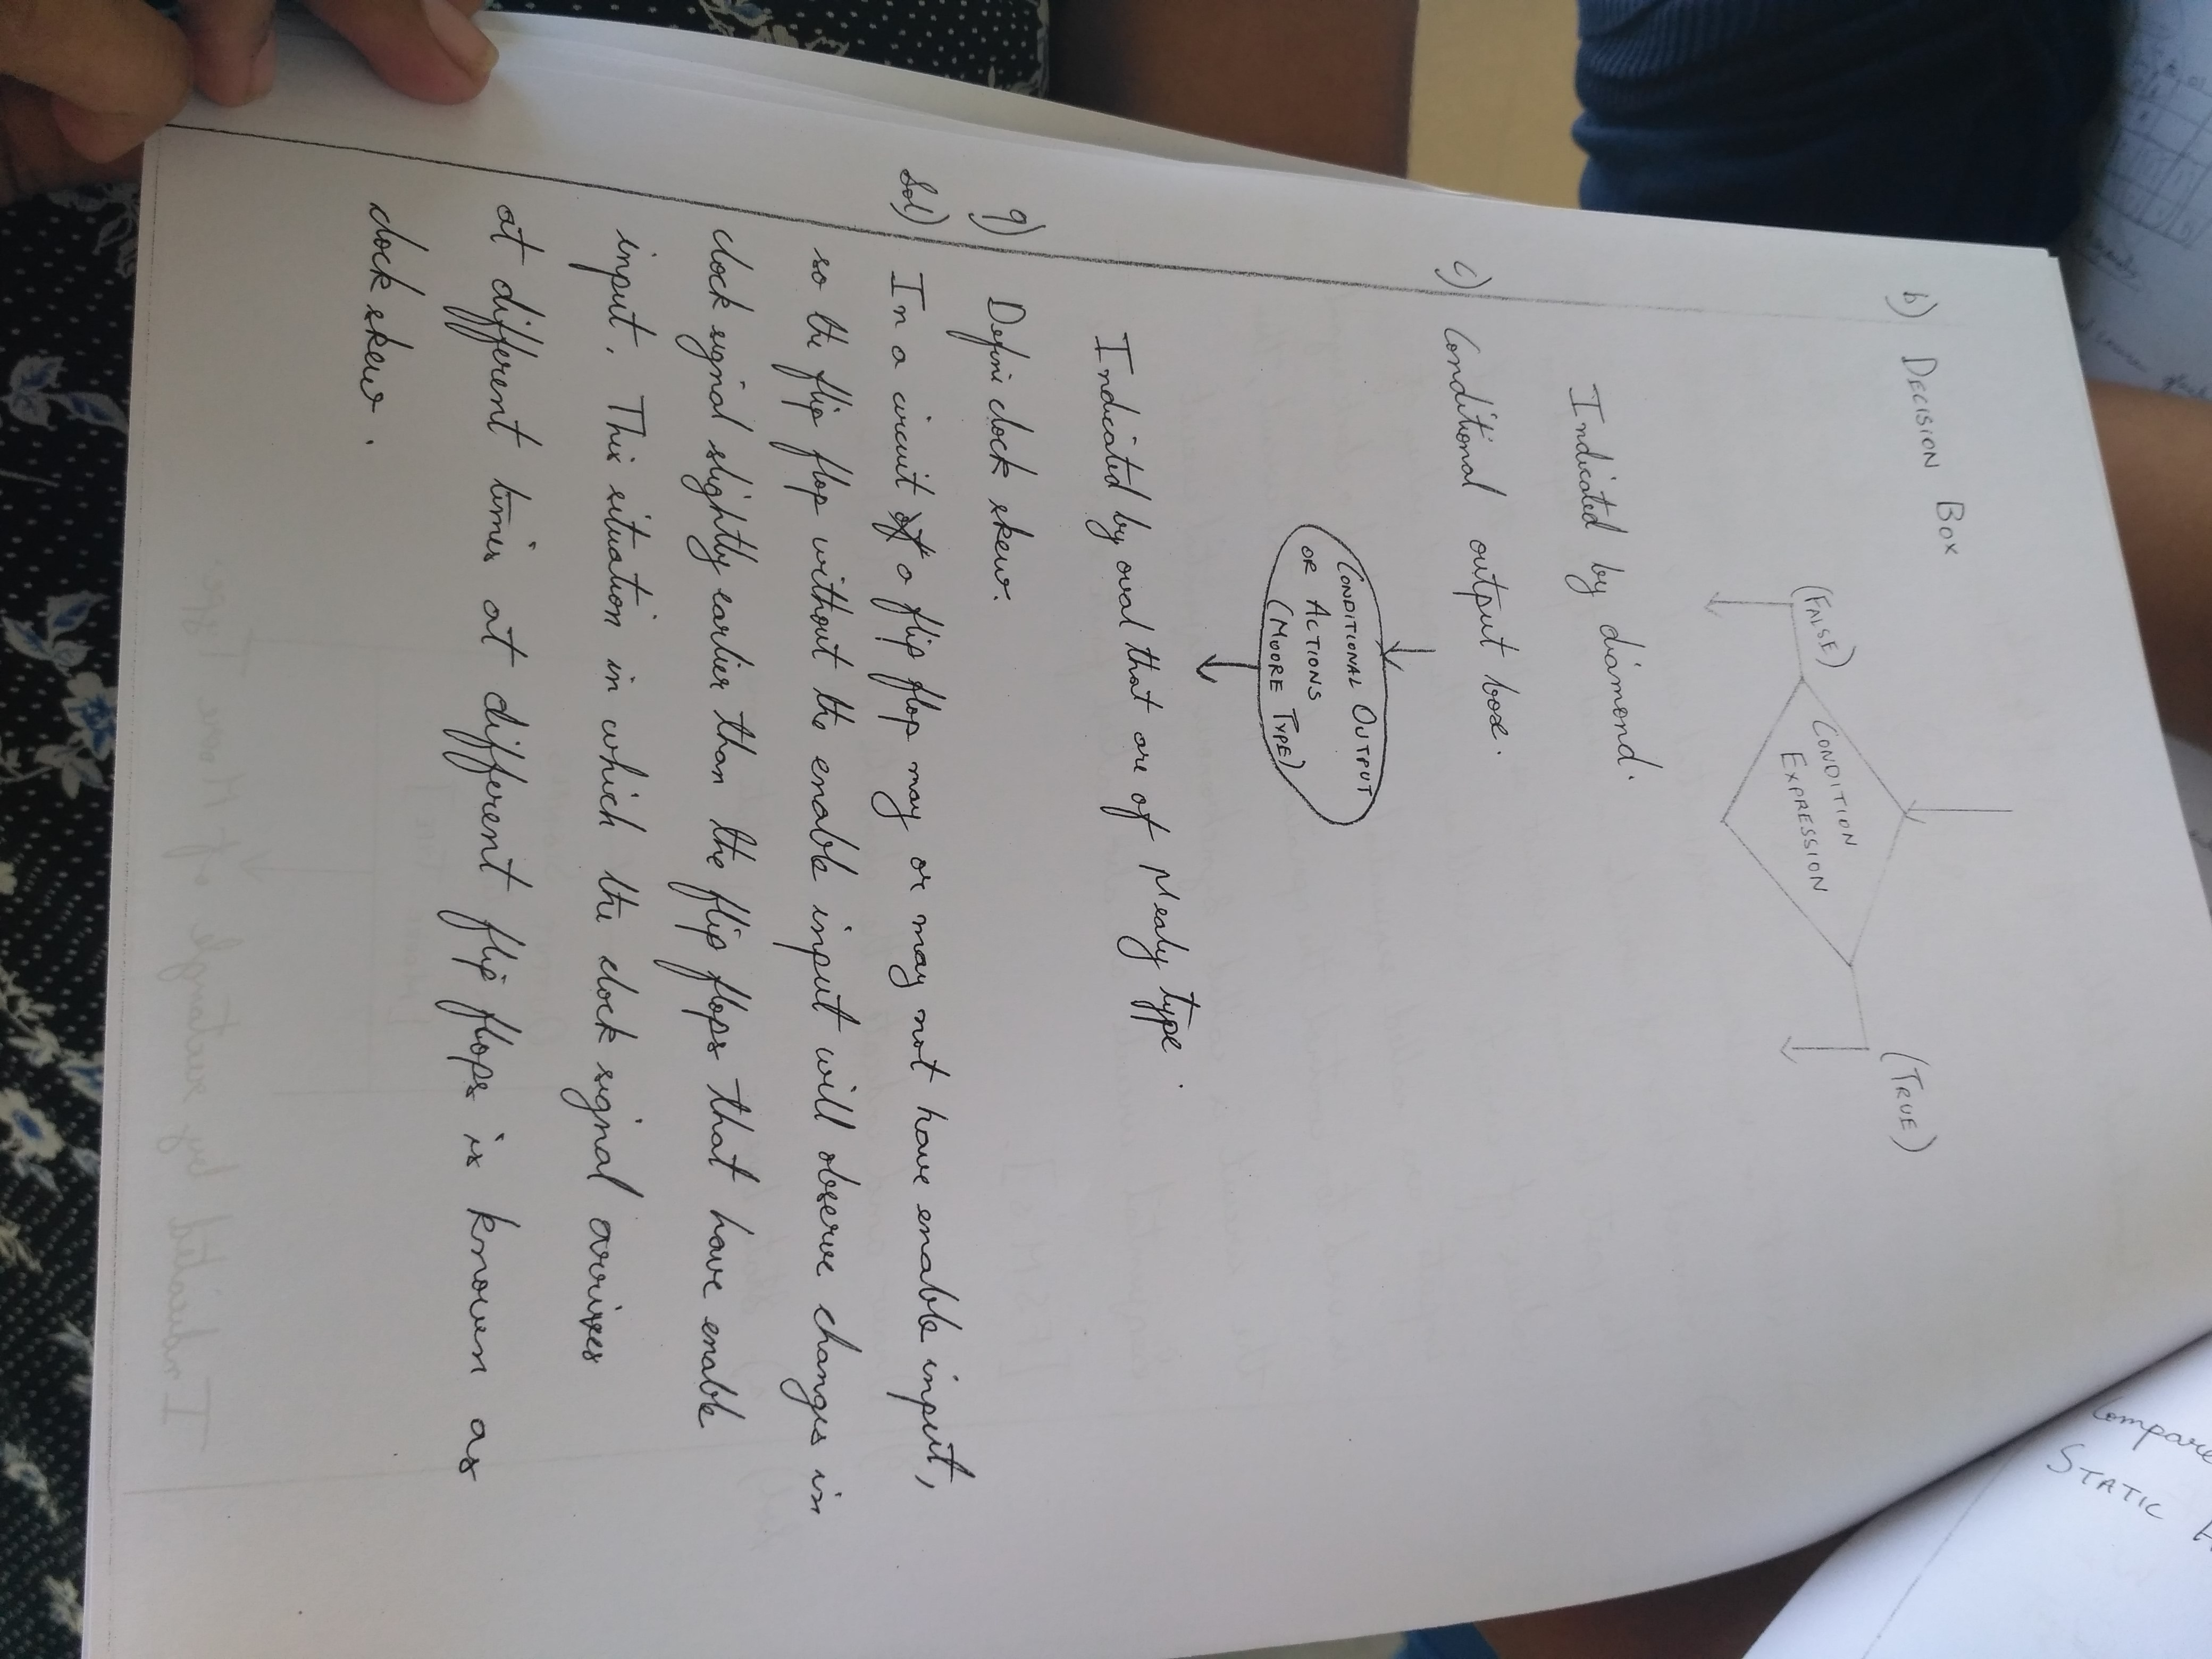 b) DECISION BOX
(FALSE)
CONDITION
EXPRESSION
(TRUE)
Indicated by diamond.
c) Conditional output box.
CONDITIONAL OUTPUT
OR ACTIONS
(MOORE TYPE)
Indicated by oval that are of Mealy type.
9) Define clock skew.
Sol) In a circuit of a flip flop may or may not have enable input,
so the flip flop without the enable input will observe changes in
clock signal slightly earlier than the flip flops that have enable
input. This situation in which the clock signal arrives
at different times at different flip flops is known as
clock skew.
Compare
STATIC